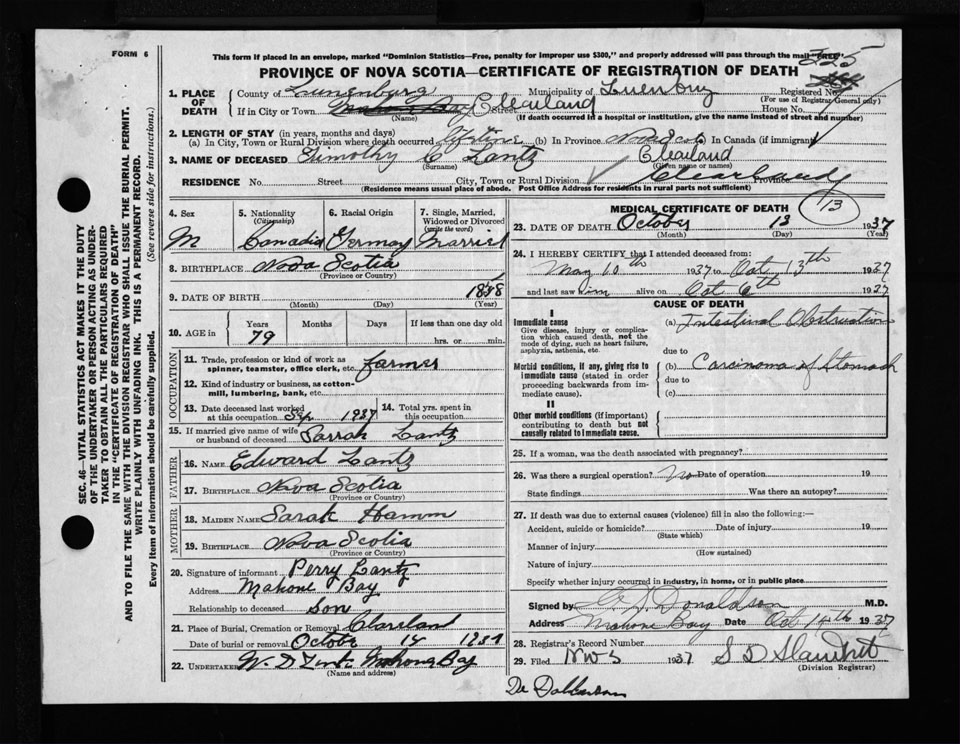 FORM 6
This form if placed in an envelope, marked "Dominion Statistics—Free, penalty for improper use $300," and properly addressed will pass through the mail "FREE"
525
PROVINCE OF NOVA SCOTIA—CERTIFICATE OF REGISTRATION OF DEATH
Registered No.
(For use of Registrar General only)
1. PLACE OF DEATH
County of Lunenburg
Municipality of
If in City or Town Mahone Bay Clearland Street House No.
(Name) (If death occurred in a hospital or institution, give the name instead of street and number)
2. LENGTH OF STAY (in years, months and days)
(a) In City, Town or Rural Division where death occurred (b) In Province In Canada (if immigrant)
3. NAME OF DECEASED Timothy C Lantz Clearland
(Surname) (Given name or names)
RESIDENCE No. Street City, Town or Rural Division Clearland Province
(Residence means usual place of abode. Post Office Address for residents in rural parts not sufficient)
SEC. 46—VITAL STATISTICS ACT MAKES IT THE DUTY
OF THE UNDERTAKER OR PERSON ACTING AS UNDER-
TAKER TO OBTAIN ALL THE PARTICULARS REQUIRED
IN THE "CERTIFICATE OF REGISTRATION OF DEATH"
AND TO FILE THE SAME WITH THE DIVISION REGISTRAR WHO SHALL ISSUE THE BURIAL PERMIT.
WRITE PLAINLY WITH UNFADING INK. THIS IS A PERMANENT RECORD.
Every item of information should be carefully supplied. (See reverse side for instructions.)
4. Sex
M
5. Nationality
(Citizenship)
Canadia
6. Racial Origin
Germay
7. Single, Married,
Widowed or Divorced
(write the word)
Married
8. BIRTHPLACE Nova Scotia
(Province or Country)
9. DATE OF BIRTH 1858
(Month) (Day) (Year)
10. AGE in
Years Months Days If less than one day old
79 hrs. or min.
OCCUPATION
11. Trade, profession or kind of work as
spinner, teamster, office clerk, etc. farmer
12. Kind of industry or business, as cotton-
mill, lumbering, bank, etc.
13. Date deceased last worked
at this occupation Sep 1937
14. Total yrs. spent in
this occupation
15. If married give name of wife
or husband of deceased Sarrah Lantz
FATHER
16. NAME Edward Lantz
17. BIRTHPLACE Nova Scotia
(Province or Country)
MOTHER
18. MAIDEN NAME Sarah Hamm
19. BIRTHPLACE Nova Scotia
(Province or Country)
20. Signature of informant Perry Lantz
Address Mahone Bay
Relationship to deceased Son
21. Place of Burial, Cremation or Removal
Date of burial or removal Octobe 14 1937
22. UNDERTAKER Mahone Bay
(Name and address)
MEDICAL CERTIFICATE OF DEATH
13
23. DATE OF DEATH October 13 1937
(Month) (Day) (Year)
24. I HEREBY CERTIFY that I attended deceased from:
May 10th 1937 to Oct 13th 1937
and last saw him alive on Oct 6th 1937
CAUSE OF DEATH
I
Immediate cause
Give disease, injury or complica-
tion which caused death, not the
mode of dying, such as heart failure,
asphyxia, asthenia, etc.
(a) Intestinal Obstruction
due to
Morbid conditions, if any, giving rise to
immediate cause (stated in order
proceeding backwards from im-
mediate cause).
(b) Carcinoma of Stomach
due to
(c)
II
Other morbid conditions (if important)
contributing to death but not
causally related to immediate cause.
25. If a woman, was the death associated with pregnancy?
26. Was there a surgical operation? No Date of operation 19
State findings Was there an autopsy?
27. If death was due to external causes (violence) fill in also the following:—
Accident, suicide or homicide? Date of injury 19
(State which)
Manner of injury
(How sustained)
Nature of injury
Specify whether injury occurred in industry, in home, or in public place
Signed by Donaldson M.D.
Address Mahone Bay Date Oct 14th 1937
28. Registrar's Record Number
29. Filed Nov 5 1937
(Division Registrar)